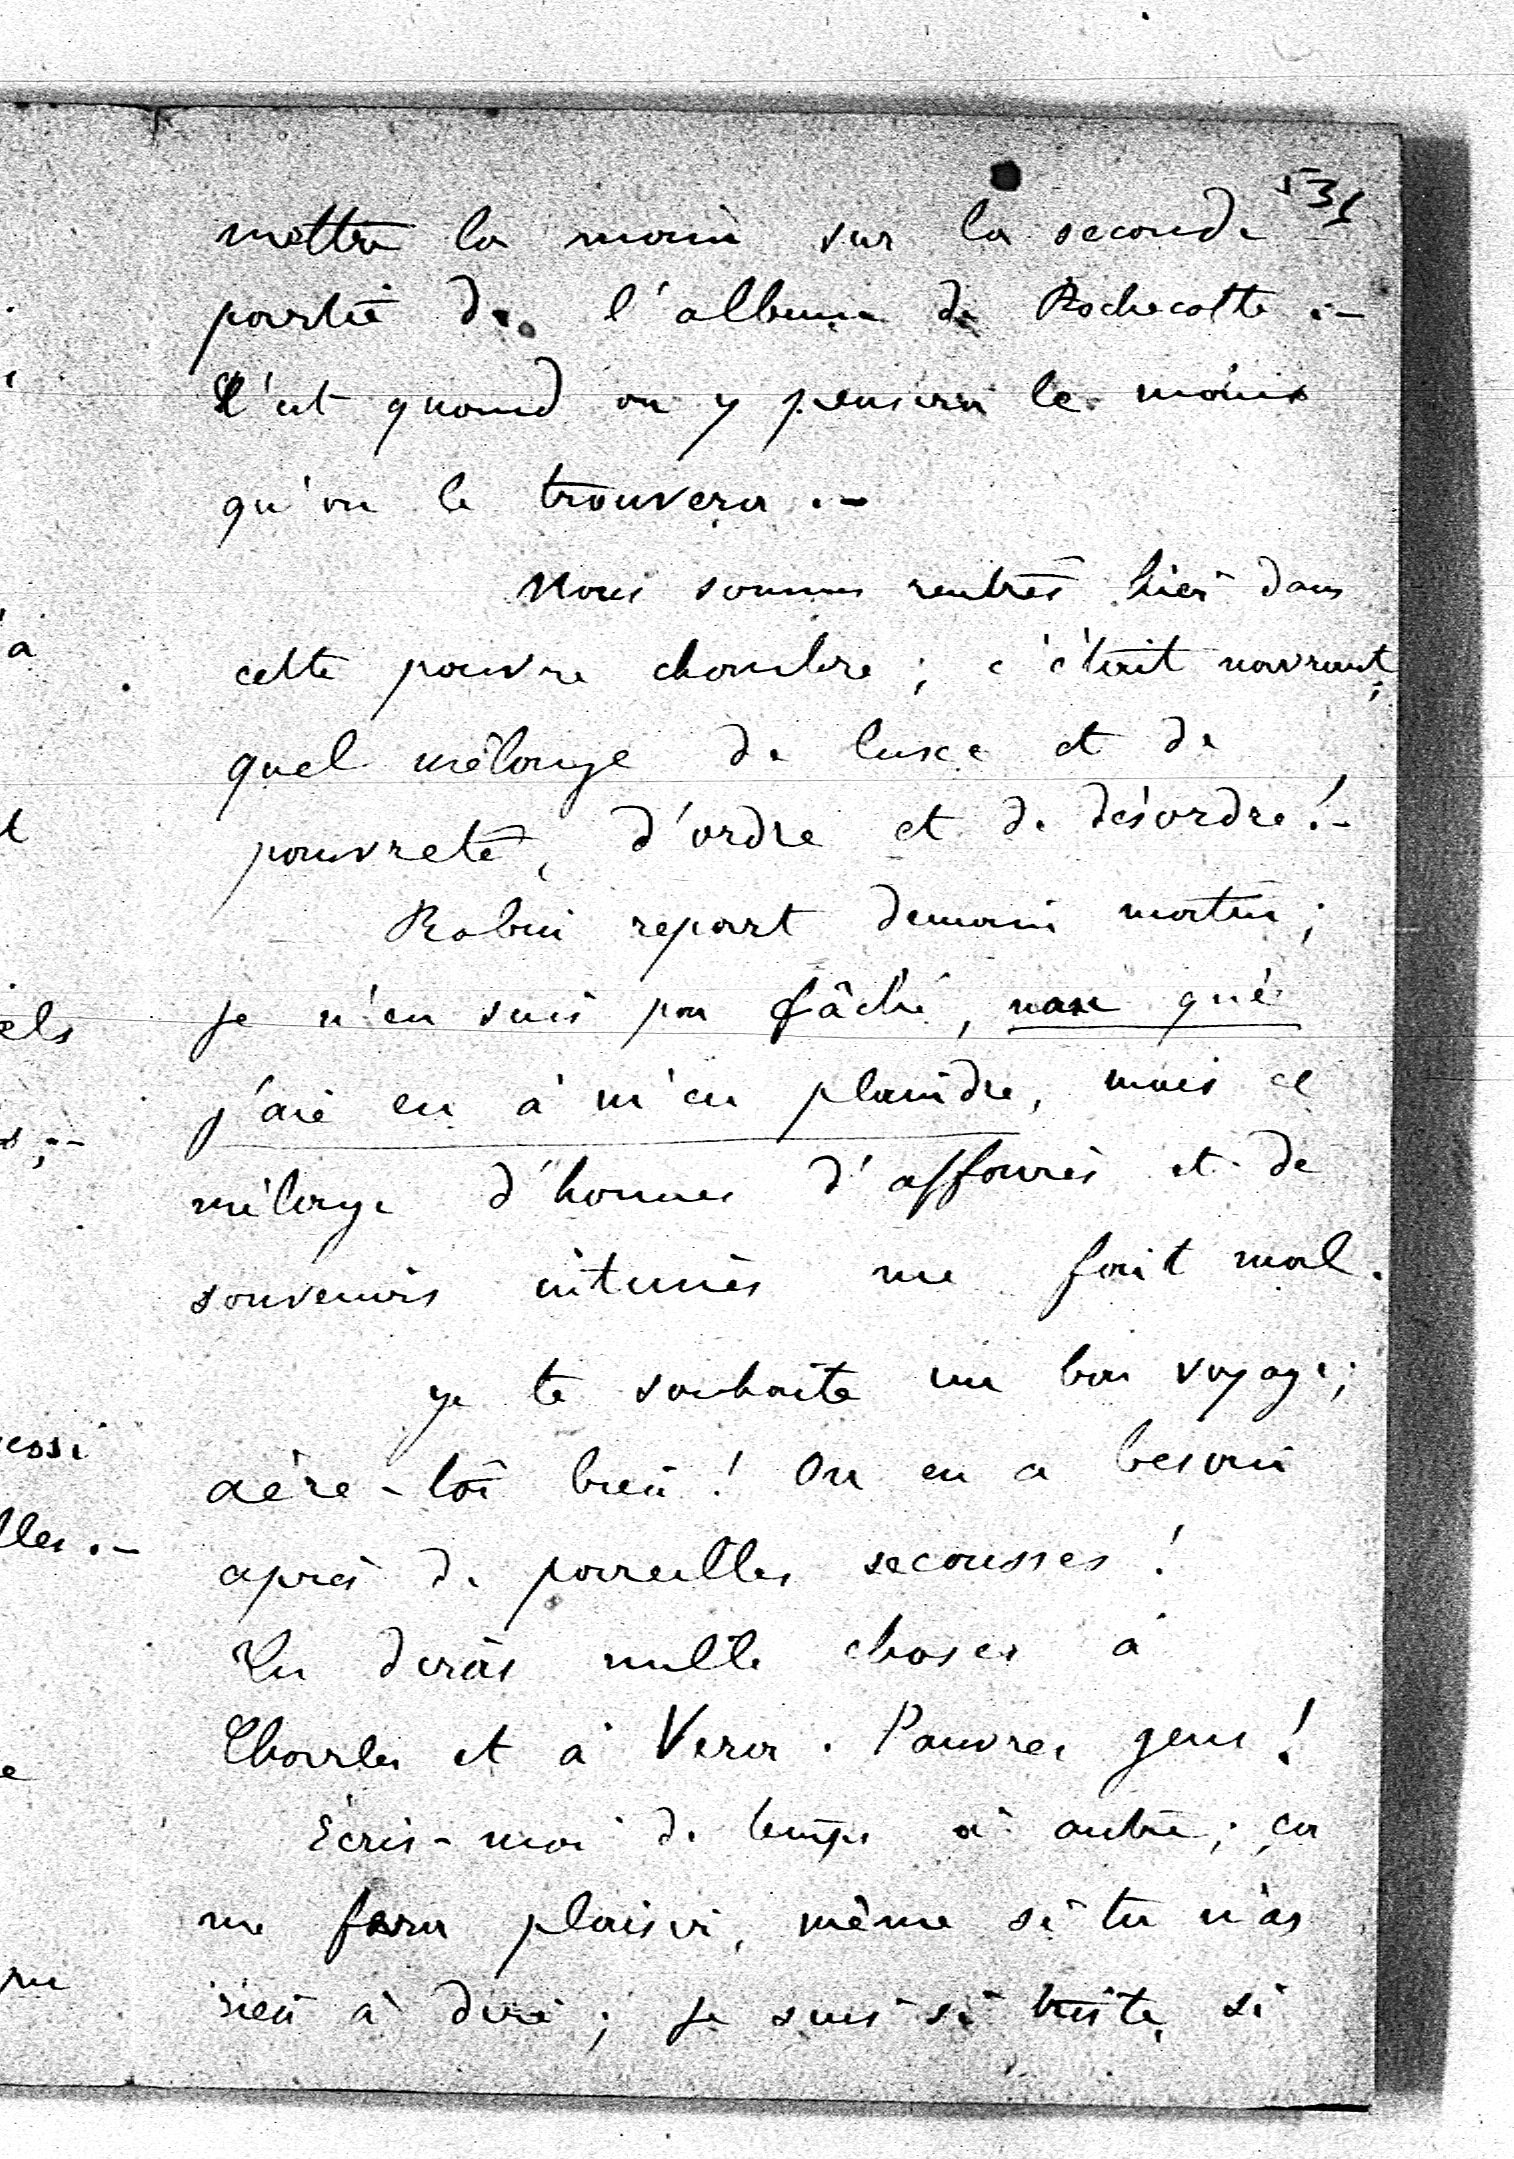 531
mettre la main sur la seconde
partie de l'album de Rochecotte .-
C'est quand on y pensera le moins
qu'on le trouvera .-
Nous sommes rentrés hier dans
cette pauvre chambre ; c'était navrant ;
quel mélange de luxe et de
pauvreté, d'ordre et de désordre !-
Robin repart demain matin ;
je n'en suis pas fâché, non que
j'aie eu à m'en plaindre, mais ce
mélange d'homme d'affaires et de
souvenirs intimes me fait mal.
Je te souhaite un bon voyage ;
aère-toi bien ! On en a besoin
après de pareilles secousses !
Tu diras mille choses à
Charles et à Vera. Pauvres gens !
Écris-moi de temps à autre ; ça
me fera plaisir, même si tu n'as
rien à dire ; je suis si triste, si
à
els
essi
lles .-